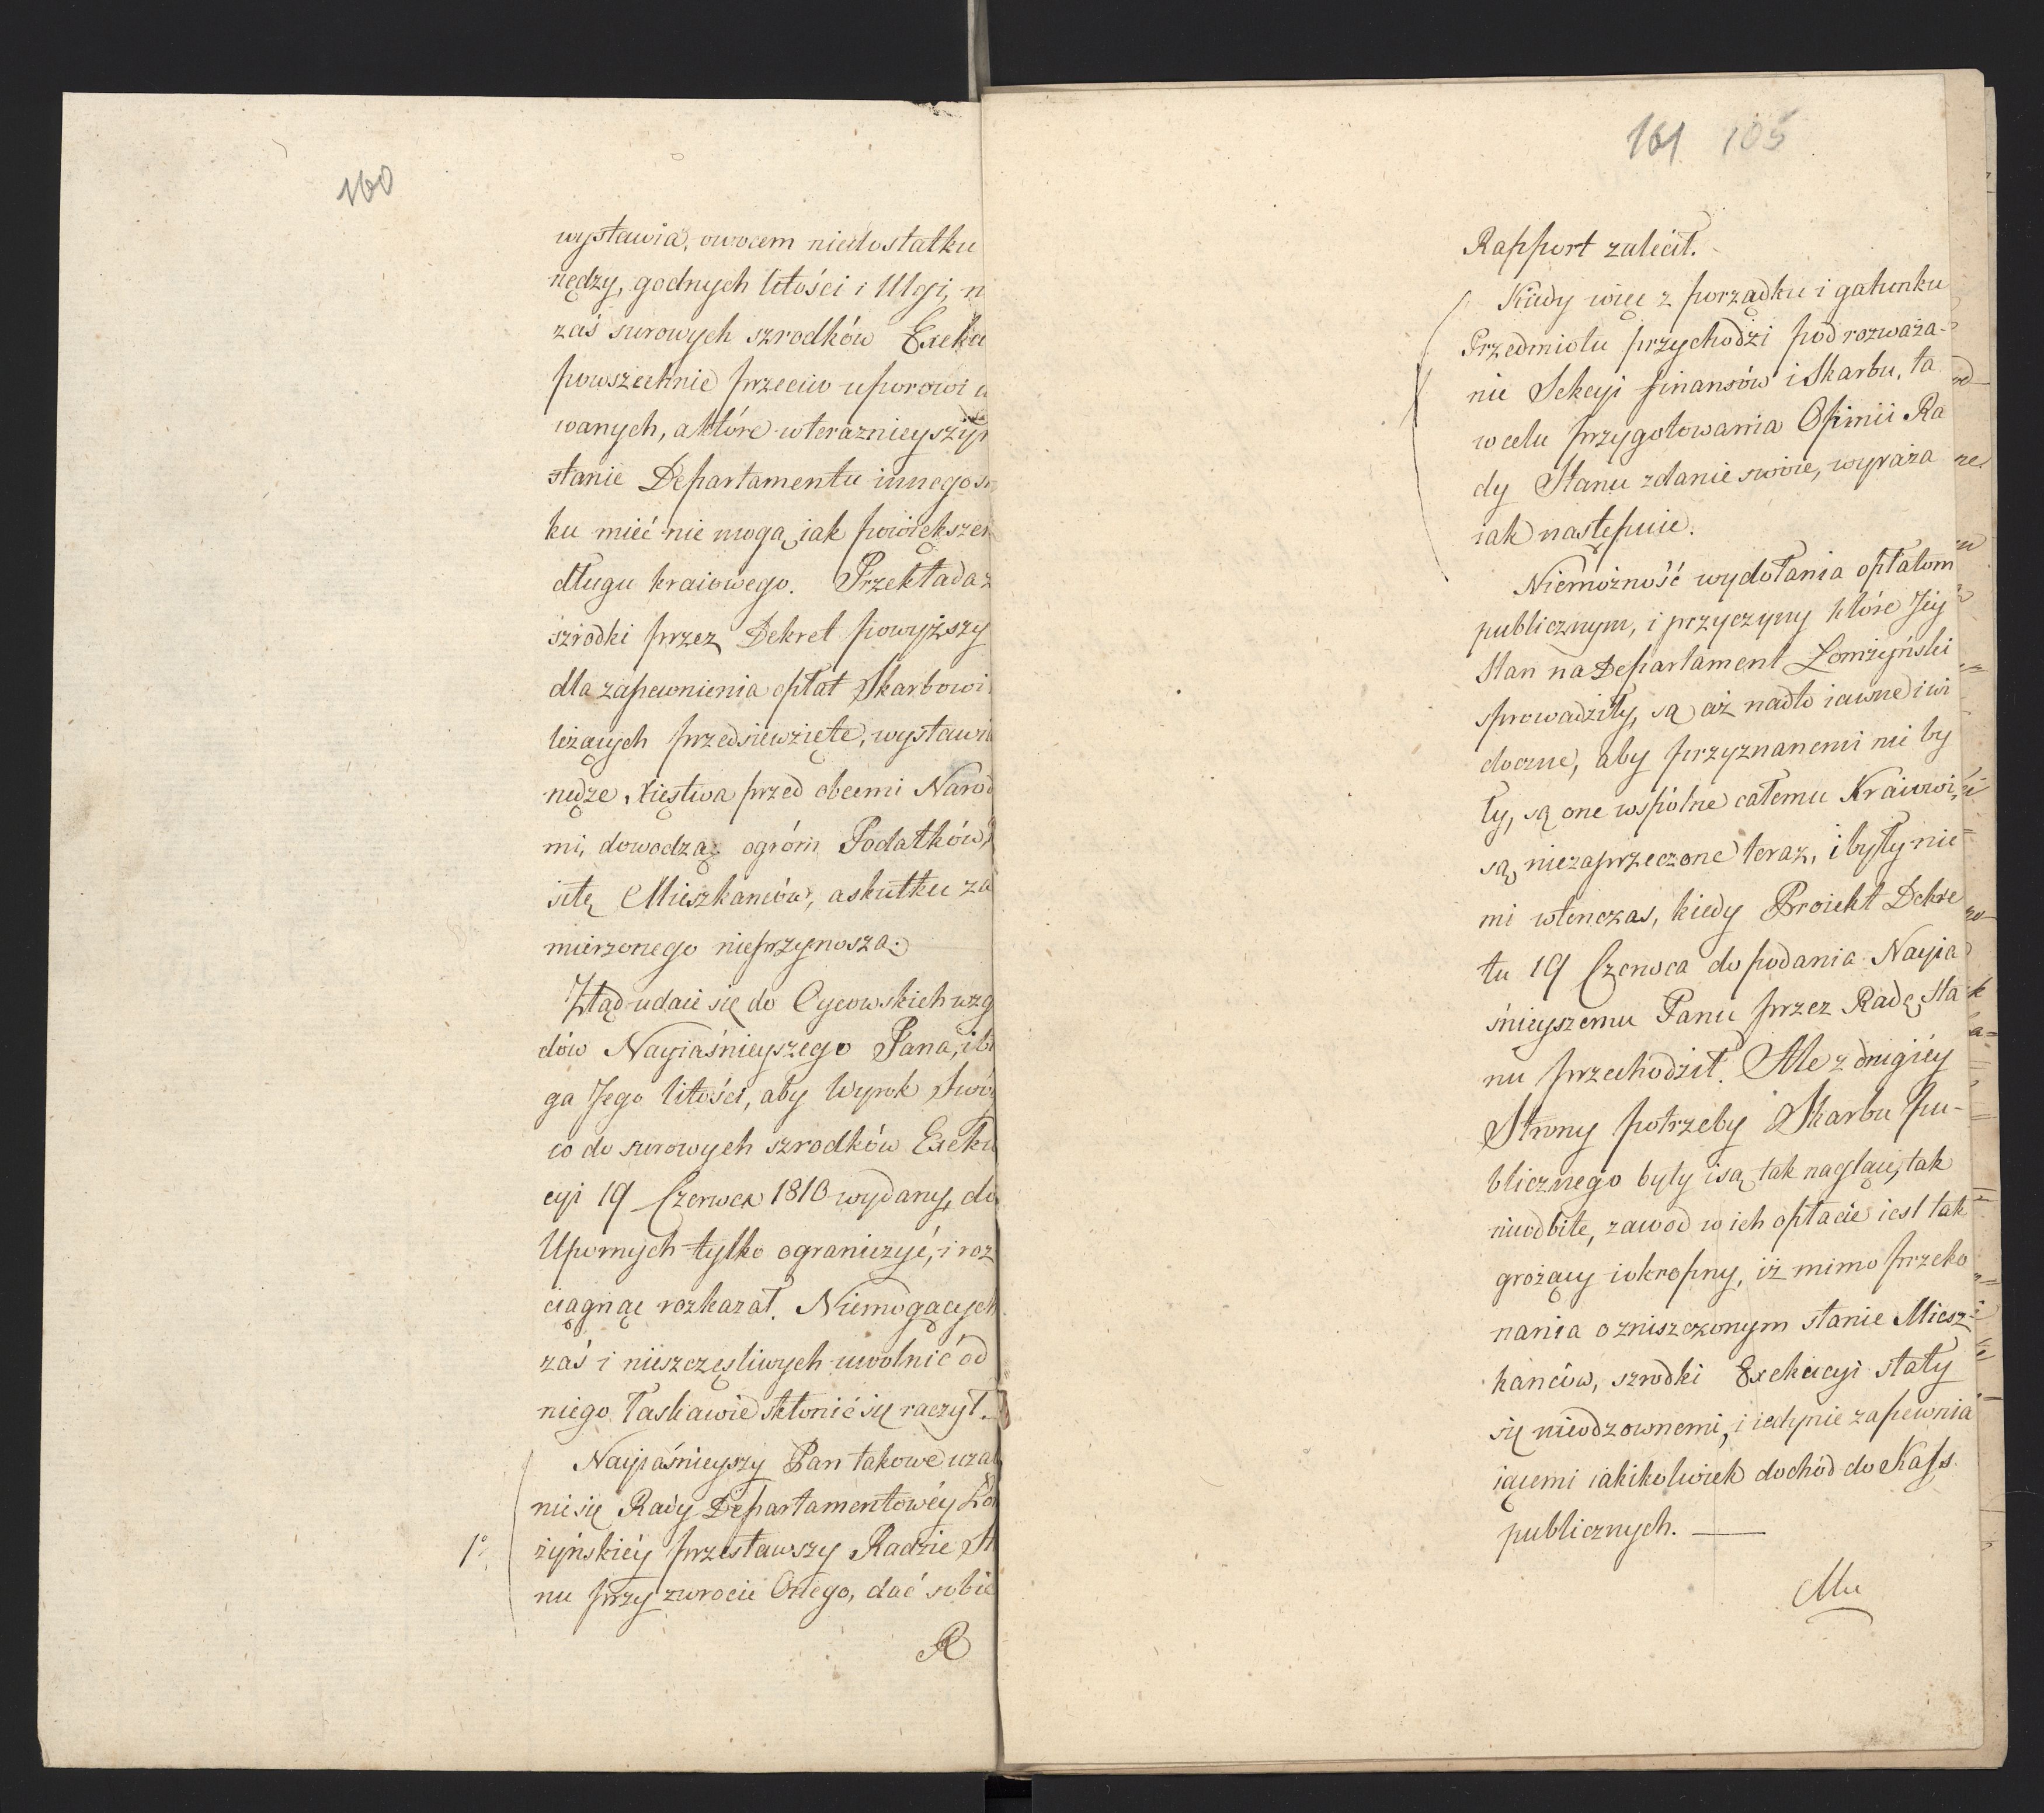 160
wystawia, owocem niedostatku
nędzy, godnych litości i Ulgi, n
zaś surowych szrodków Exeku
powszechnie przeciw uporowi u
wanych, a które w teraznieyszym
stanie Departamentu innego s
ku mieć nie mogą iak powiększen
długu kraiowego. Przekłada z
szrodki przez Dekret powyższy
dla zapewnienia opłat Skarbowi
leżących przedsiewzięte, wystawi
nędzę Xięstwa przed obcemi Narod
mi, dowodzą ogrom Podatków
siłę Mieszkańców, a skutku za
mierzonego nieprzynoszą.
Ztąd udaie się do Oycowskich wzg
dów Nayiaśnieyszego Pana, i b
ga Jego litości, aby Wyrok Swó
co do surowych szrodków Exeku
cyi 19 Czerwca 1810 wydany, do
Upornych tylko ograniczyć, i roz
ciągnąć rozkazał. Niemogących
zaś i nieszczęsliwych uwolnić od
niego łaskawie skłonić się raczył.
Nayiaśnieyszy Pan takowe uzal
nie się Rady Departamentowéy Łom
1º żyńskiéy przesławszy Radzie St
nu przy zwrocie Onego, dać sobie
R
161 105
Rapport zalecił.
Kiedy więc z porządku i gatunku
Przedmiotu przychodzi pod rozważa-
nie Sekcyi finansów i Skarbu, ta
w celu przygotowania Opinii Ra
dy Stanu zdanie swoie, wyraża
iak następuie.
Niemożność wydołania opłatom
publicznym, i przyczyny które Jey
Stan na Departament Łomżyński
sprowadziły, są aż nadto iawne i wi
doczne, aby przyznanemi nie by
ły, są one wspólne całemu Kraiowi,
są niezaprzeczone teraz, i były nie
mi wtenczas, kiedy Proiekt Dekre
tu 19 Czerwca do podania Nayia
śnieyszemu Panu przez Radę Sta
nu przechodził. Ale z drugiéy
Strony potrzeby Skarbu pu-
blicznego były i są tak naglące, tak
nieodbite, zawod w ich opłacie iest tak
grożący i okropny, iż mimo przeko
nania o zniszczonym stanie Miesz-
kańców, szrodki Exekucyi stały
się nieodzownemi, i iedynie zapewnia
iącemi iakikolwiek dochod do Kass
publicznych. —
Ale